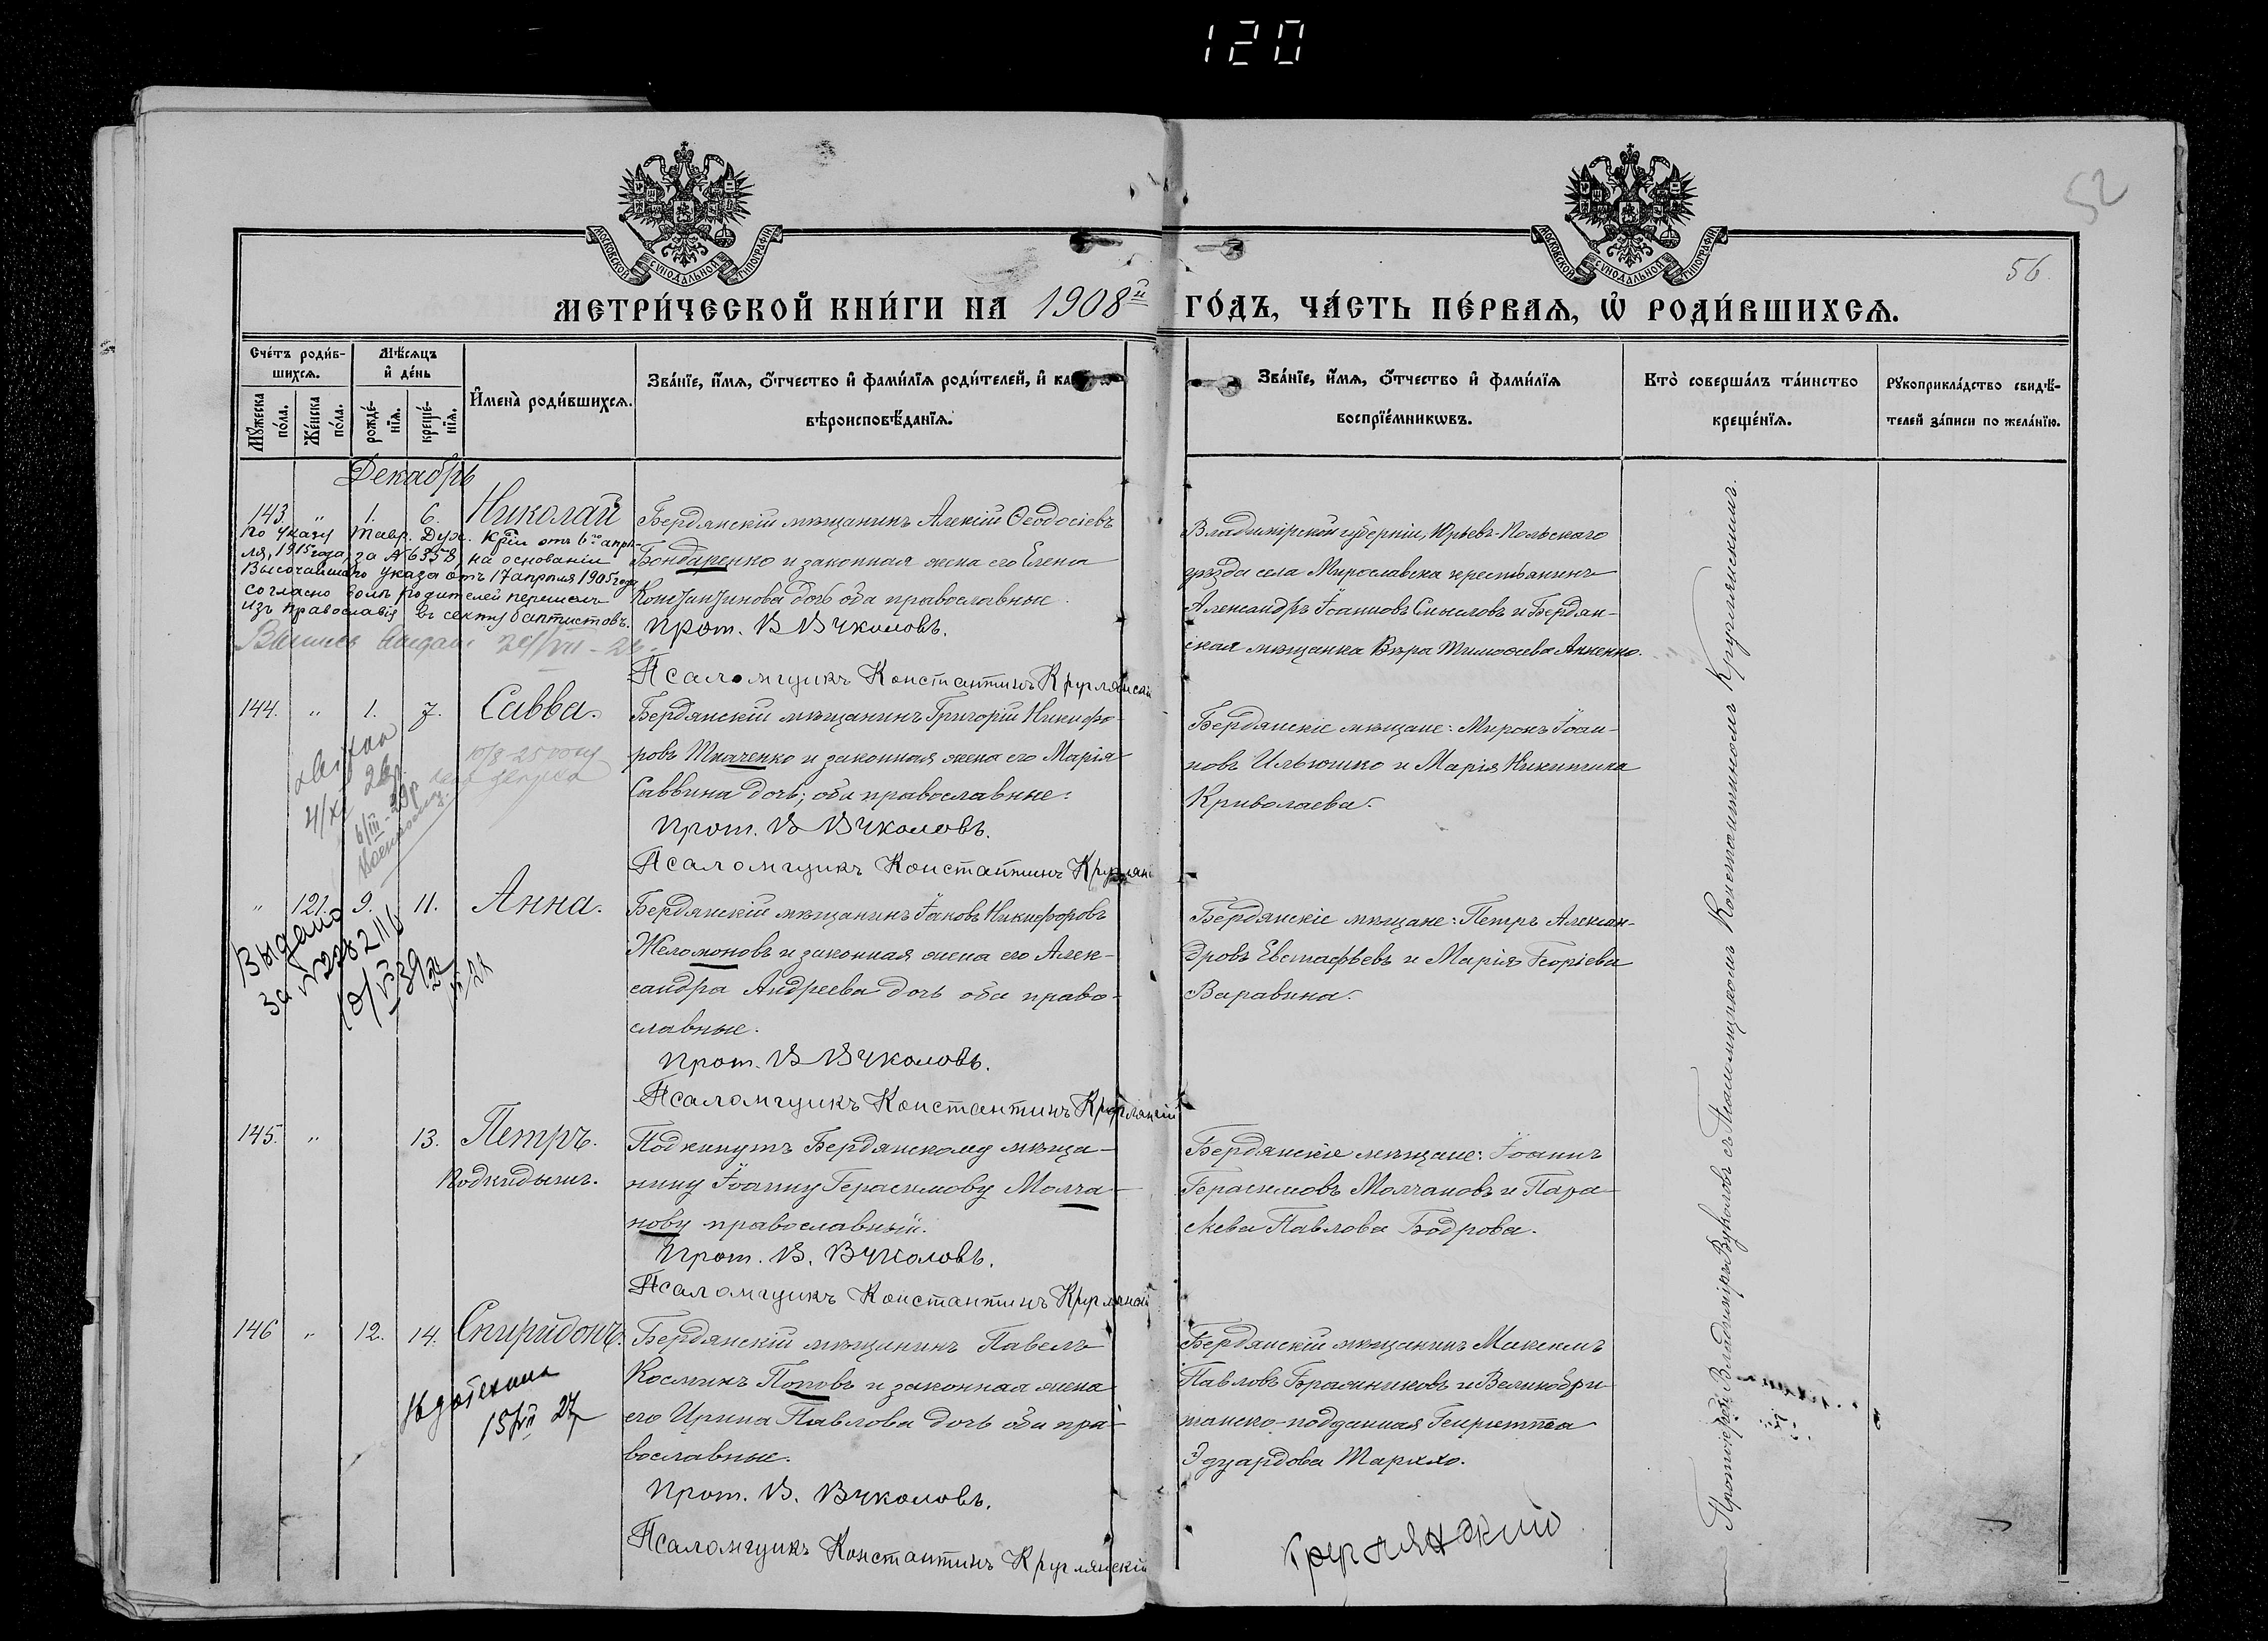 120
52
56.
МОСКОВСКОЙ СУНОДАЛЬНОЙ ТИПОГРАФІИ
МОСКОВСКОЙ СУНОДАЛЬНОЙ ТИПОГРАФІИ
МЕТРИ́ЧЕСКОЙ КНИ́ГИ НА 1908й ГО́ДЪ, ЧА́СТЬ ПЕ́РВАѦ, Ѡ РОДИ́ВШИХСѦ.
Сче́тъ роди́в-
шихсѧ.
Му́жеска
по́ла.
Же́нска
по́ла.
Мѣ́сѧцъ
и де́нь
рожде́-
нїѧ.
креще́-
нїѧ.
Имена̀ роди́вшихсѧ.
Зва́нїе, и́мѧ, о́тчество и фами́лїѧ роди́телей, и
вѣроисповѣ́данїѧ.
Зва́нїе, и́мѧ, о́тчество и фами́лїѧ
воспрїе́мникѡвъ.
Кто̀ соверша́лъ та́инство
креще́нїѧ.
Рукоприкла́дство свидѣ́-
телей за́писи по жела́нїю.
Декабрь
143. " 1. 6. Николай
По указу Тавр. Дух. Кріи отъ 6го апрѣ-
ля, 1915 года, за № 6358, на основаніи
Высочайшаго указа отъ 17 апрѣля 1905 года
согласно волѣ родителей перешелъ
изъ православія въ секту баптистовъ.
Бердянскій мѣщанинъ Алексій Ѳеодосіевъ
Бондаренко и законная жена его Елена
Константинова дочь оба православные.
Прот. В Вуколовъ.
Псаломщикъ Константинъ Круглянскій
Владимірской губерніи, Юрьевъ-Польскаго
уѣзда села Мирославска крестьянинъ
Александръ Іоанновъ Смысловъ и Бердян-
ская мѣщанка Вѣра Тимоѳеева
144. " 1. 7. Савва.
Бердянскій мѣщанинъ Григорій Никифо-
ровъ Ткаченко и законная жена его Марія
Саввина дочь; оба православные.
Прот. В Вуколовъ.
Псаломщикъ Константинъ Круглян
Бердянскіе мѣщане: Миронъ Іоан-
новъ Ильюшко и Марія Никитина
Криволаева.
" 121. 9. 11. Анна.
Выдано
Бердянскій мѣщанинъ Іаковъ Никифоровъ
Желомоновъ и законная жена его Алек-
сандра Андреева дочь оба право-
славные.
Прот. В Вуколовъ.
Псаломщикъ Константинъ Круглянскій
Бердянскіе мѣщане: Петръ Алексан-
дровъ Евстафьевъ и Марія Георгіева
Варавина.
145. " 13. Петръ.
Подкидышъ.
Подкинутъ Бердянскому мѣща-
нину Іоанну Герасимову Молча-
нову православный.
Прот. В. Вуколовъ.
Псаломщикъ Константинъ Круглянскій
Бердянскіе мѣщане: Іоаннъ
Герасимовъ Молчановъ и Пара-
скева Павлова Бодрова.
146 " 12. 14. Спиридонъ.
15/VII 27
Бердянскій мѣщанинъ Павелъ
Косминъ Поповъ и законная жена
его Ирина Павлова дочь оба пра-
вославные.
Прот. В. Вуколовъ.
Псаломщикъ Константинъ Круглянскій
Бердянскій мѣщанинъ Максимъ
Павловъ Бражниковъ и Великобри-
танско-подданная Генріетта
Эдуардова
Протоіерей Владиміръ Вуколовъ съ Псаломщикомъ Константиномъ Круглянскимъ.